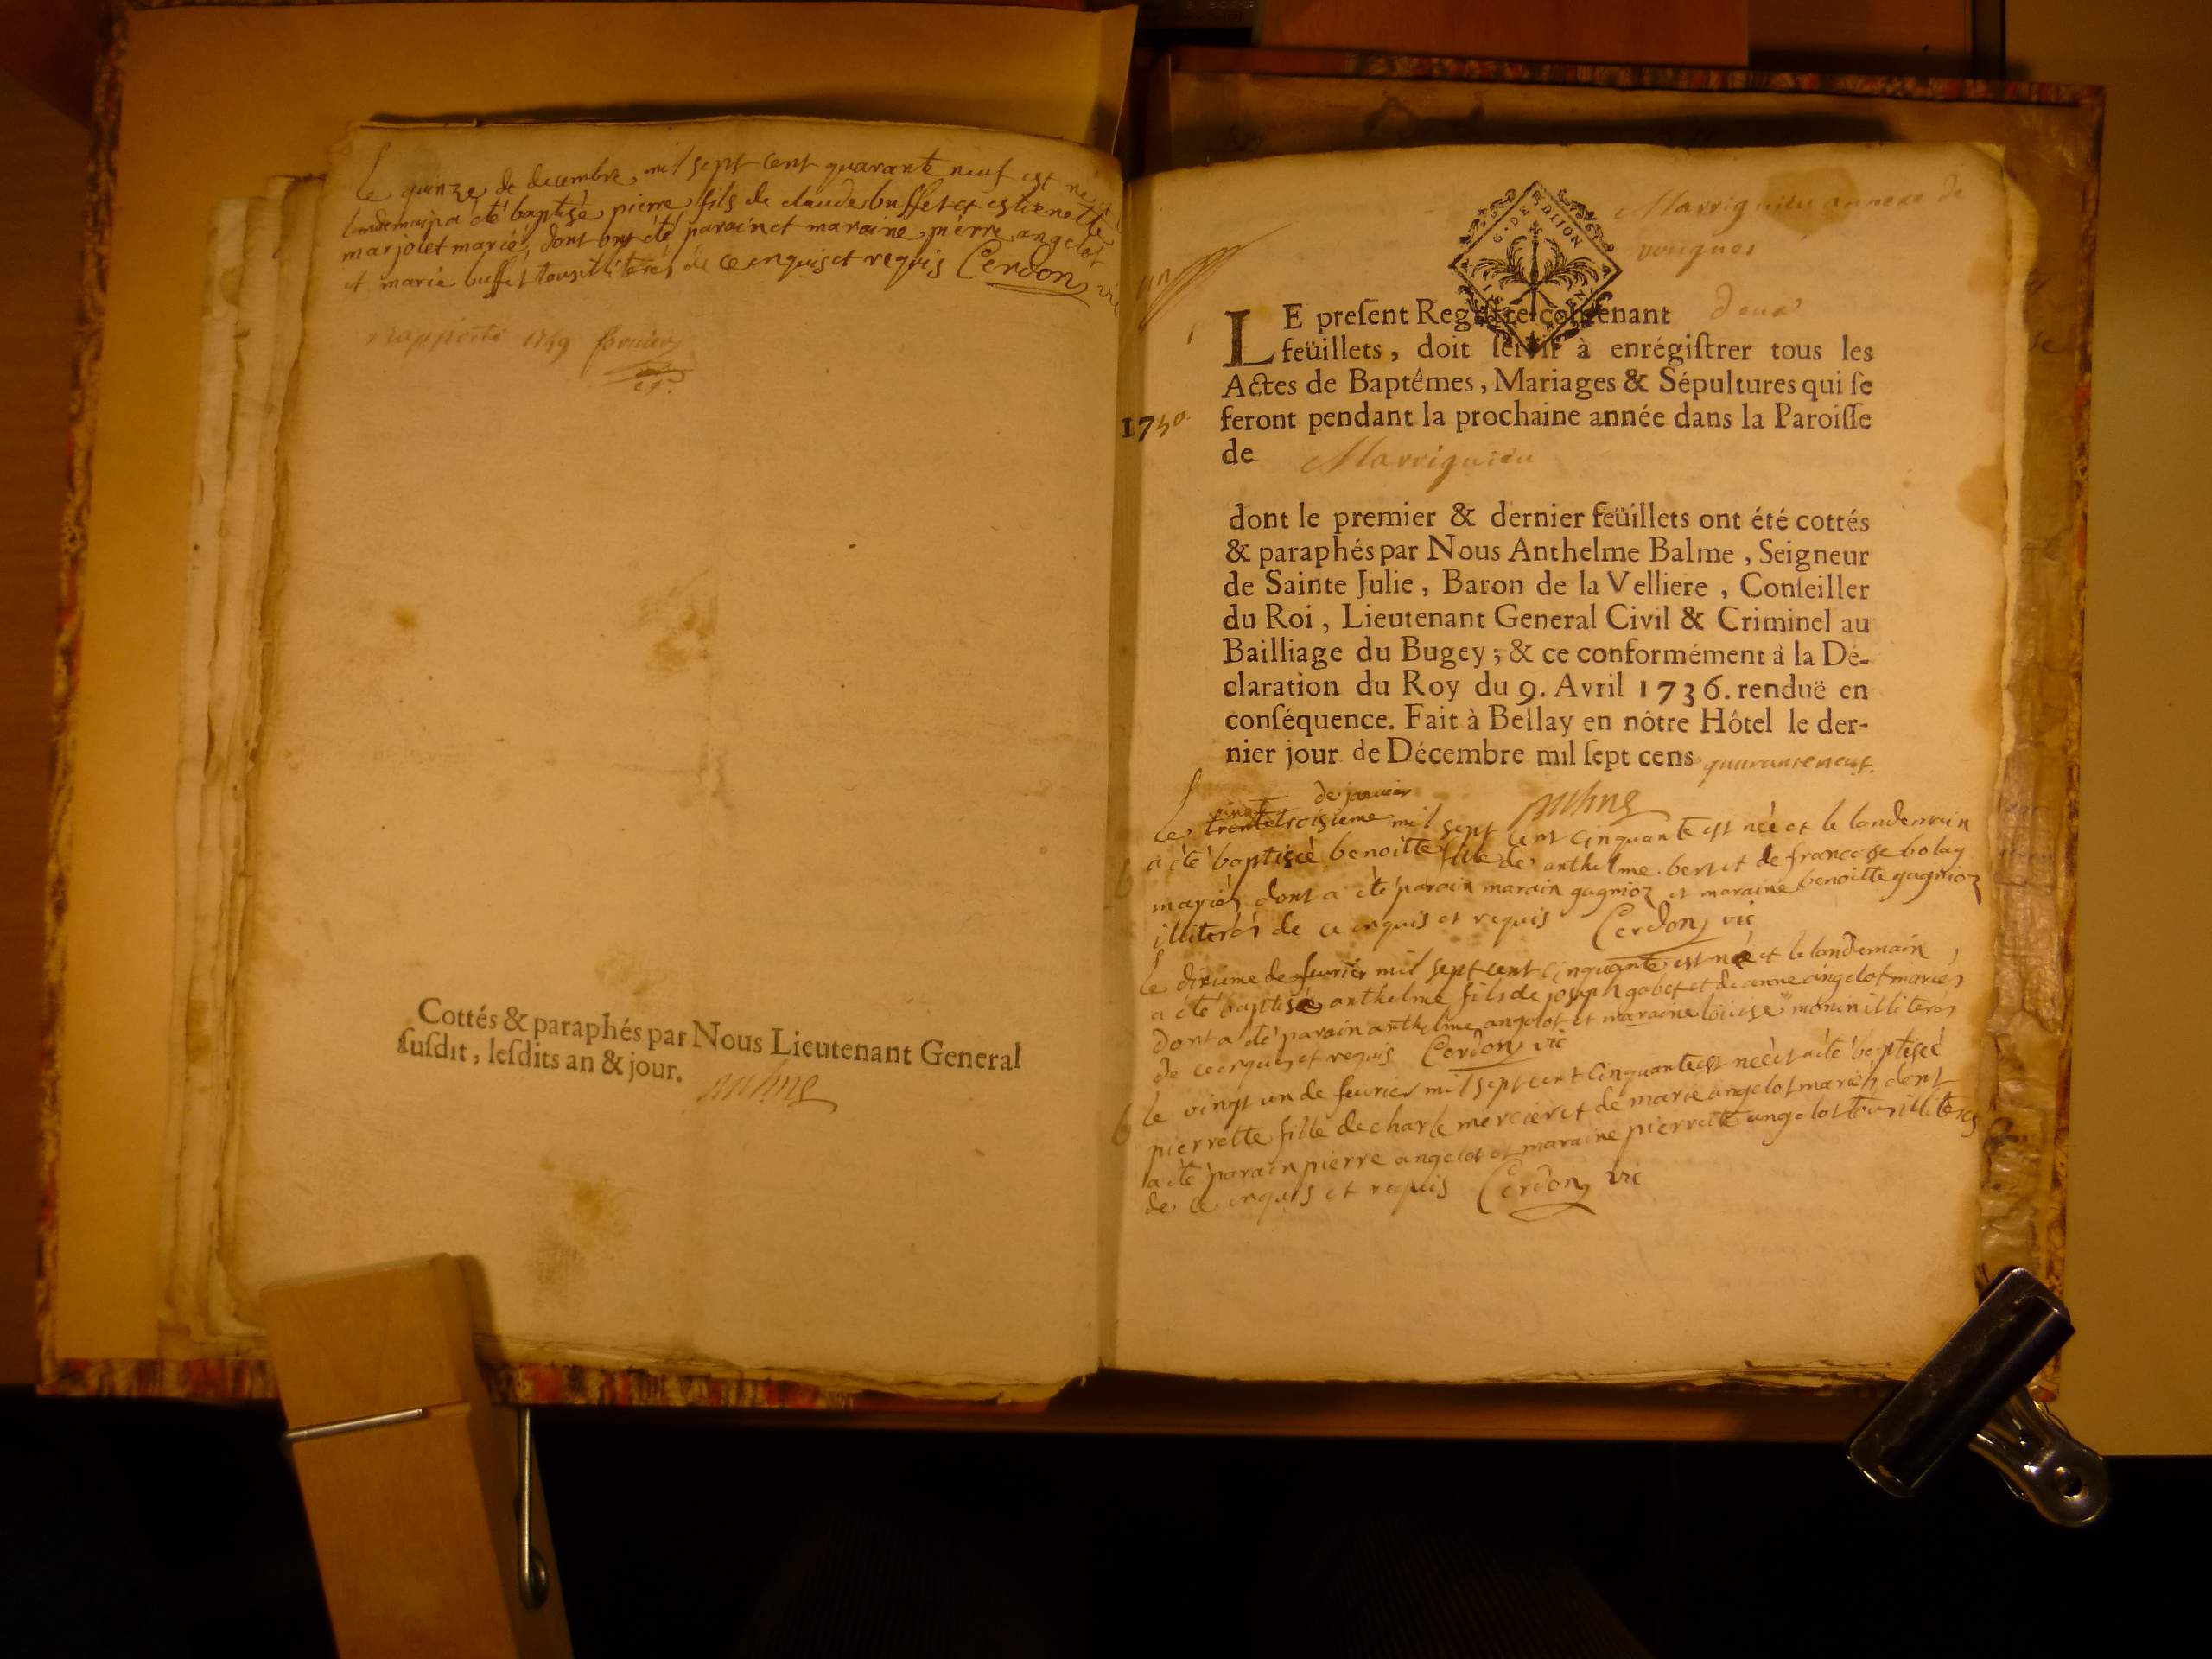 Le quinze de decembre mil sept cent quarante neuf est né et le
landemain a été baptisé pierre fils de claude buffet et estienette
marjolet mariés dont ont été parain et maraine pierre angelot
et marie buffet tous illiterés de ce enquis et requis Cerdon vic
rapporté 1749
Cottés & paraphés par Nous Lieutenant General
ſuſdit, leſdits an & jour.
G. DE DIJON
Marrignieu annexe de
vougnes
un
LE preſent Regiſtre contenant deux
feüillets, doit ſervir à enrégiſtrer tous les
Actes de Baptêmes, Mariages & Sépultures qui ſe
1750 feront pendant la prochaine année dans la Paroiſſe
de Marrignieu
dont le premier & dernier feüillets ont été cottés
& paraphés par Nous Anthelme Balme, Seigneur
de Sainte Julie, Baron de la Velliere, Conſeiller
du Roi, Lieutenant General Civil & Criminel au
Bailliage du Bugey; & ce conformément à la Dé-
claration du Roy du 9. Avril 1736. renduë en
conſéquence. Fait à Bellay en nôtre Hôtel le der-
nier jour de Décembre mil ſept cens quarante neuf.
vingt de janvier
Le trente troisieme mil sept cent cinquante est née et le landemain
b a été baptisée benoitte fille de anthelme bert et de francoise bolay
mariés dont a été parain marain gagnioz et maraine benoitte gagnioz
illiterés de ce enquis et requis Cerdon vic
Le dixieme de fevrier mil sept cent cinquante est né et le landemain
a été baptisé anthelme fils de joseph gabet et de anne angelot mariés
dont a été parain anthelme angelot et maraine loüise monin illiterés
de ce enquis et requis Cerdon vic
b le vingt un de fevrier mil sept cent cinquante est née et a été baptisée
pierrette fille de charle mercier et de marie angelot mariés dont
a été parain pierre angelot et maraine pierrette angelot tous illiterés
de ce enquis et requis Cerdon vic